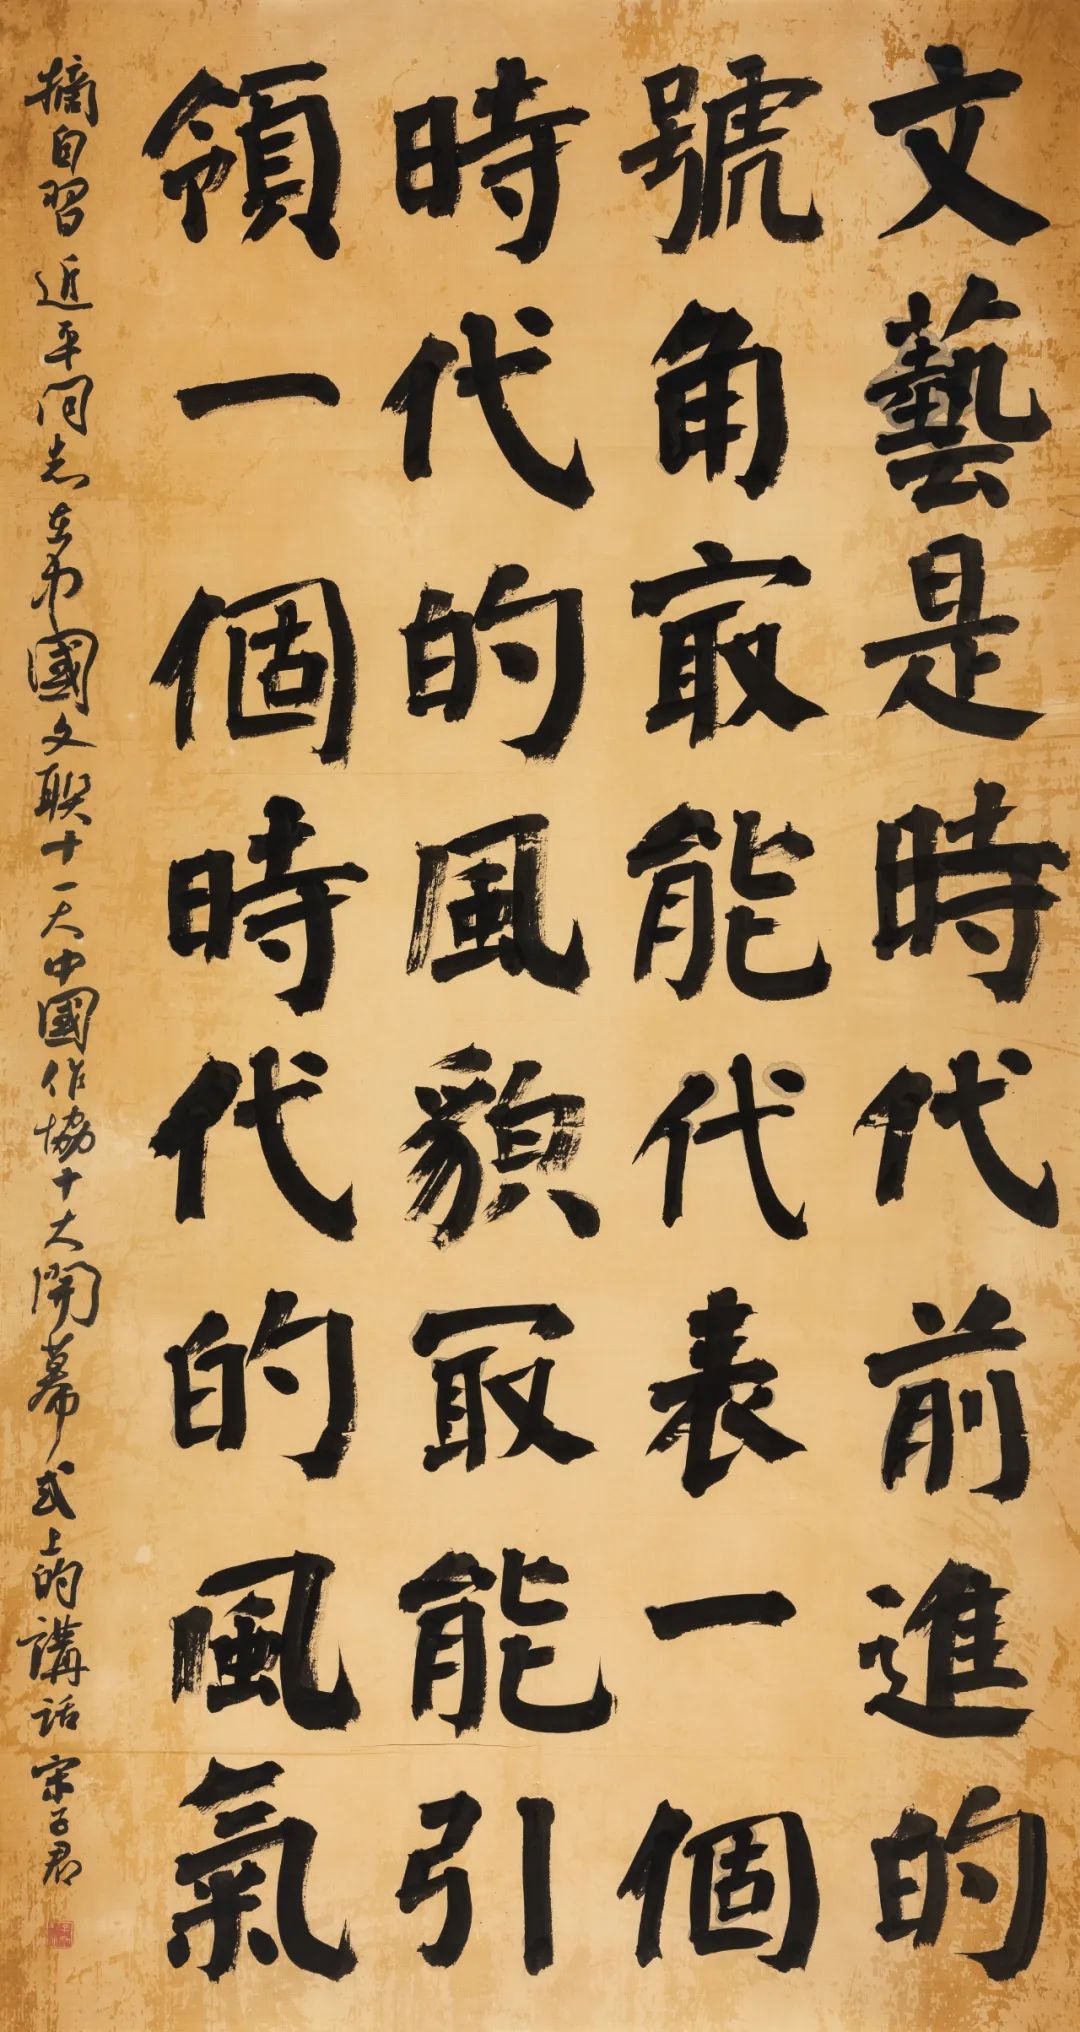 文藝是時代前進的
號角最能代表一個
時代的風貌最能引
領一個時代的風氣
摘自習近平同志在中國文聯十一大中國作協十大開幕式上的講話 宋子君